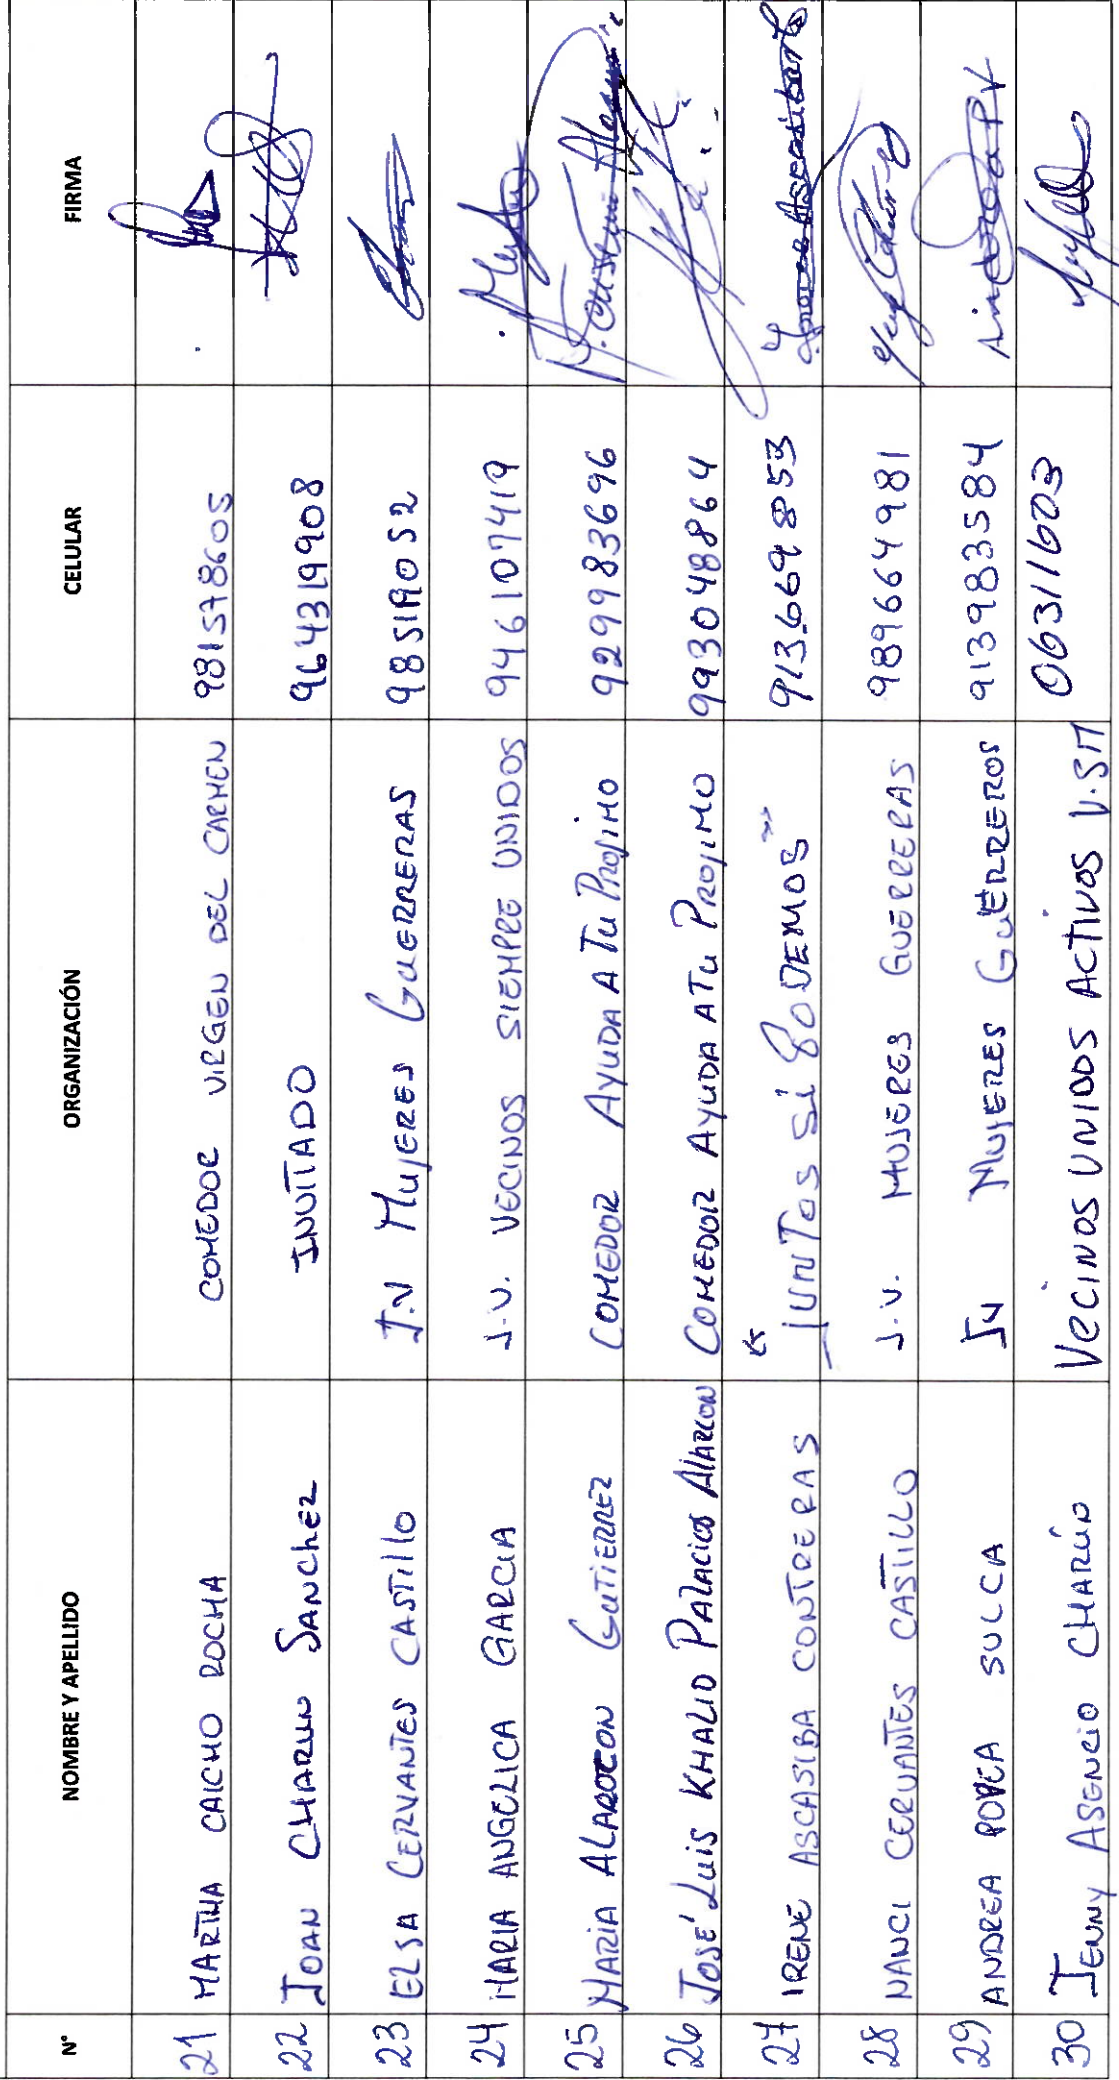 N° NOMBRE Y APELLIDO ORGANIZACIÓN CELULAR FIRMA
21 MARTHA CAICHO ROCHA COMEDOR VIRGEN DEL CARMEN 981578605
22 JOAN CHARUN SANCHEZ INVITADO 964319908
23 ELSA CERVANTES CASTIllo J.V MUJERES GUERRERAS
24 MARIA ANGELICA GARCIA J.V. VECINOS SIEMPRE UNIDOS 946107419
25 MARIA GUTIERREZ COMEDOR AYUDA A Tu PROJIMO 929983696
26 JOSÉ Luis KHALID PALACIOS AlARCON COMEDOR AYUDA A Tu PROJIMO 993048864
27 IRENE ASCASIBA CONTRERAS "JUNTOS SÍ PODEMOS" 913669853
28 NANCI CERVANTES CASTILLO J.V. MUJERES GUERRERAS 989664981
29 ANDREA SULCA JV MUJERES GUERREROS 913983584
30 JENNY ASENCIO CHARÚN VECINOS UNIDOS ACTIVOS V.SM 06311603